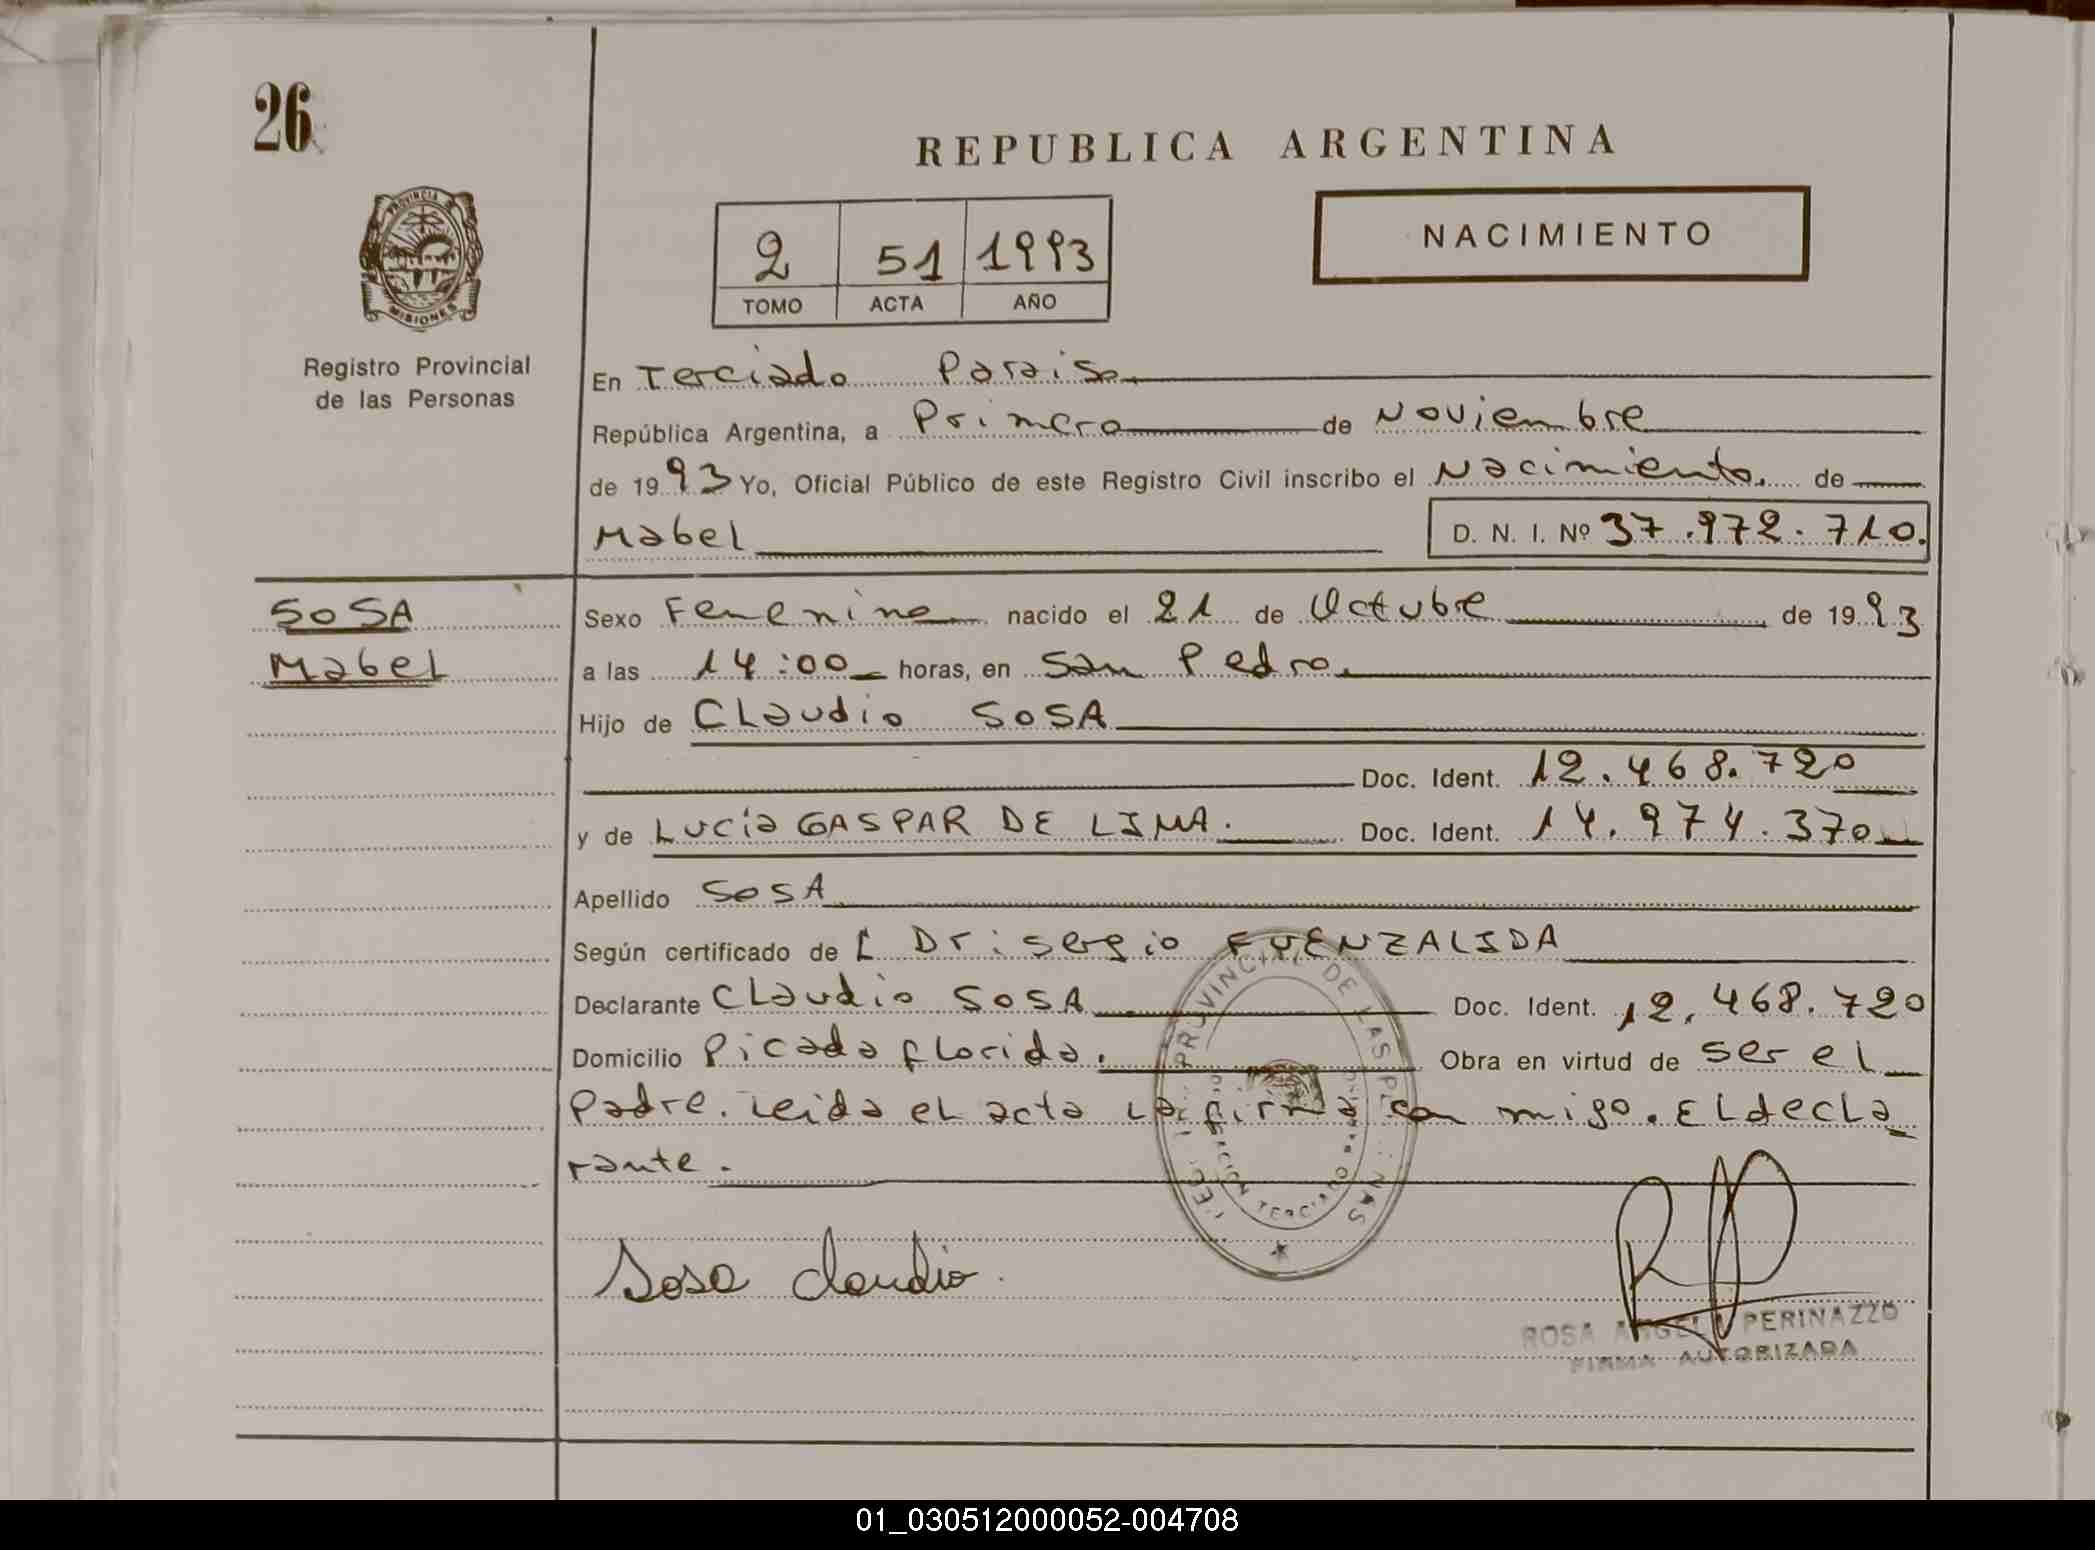 26
REPUBLICA ARGENTINA
PROVINCIA DE
MISIONES
2 51 1993
TOMO ACTA AÑO
NACIMIENTO
Registro Provincial
de las Personas
En Terciado Paraiso
República Argentina, a Primero de Noviembre
de 1993 Yo, Oficial Público de este Registro Civil inscribo el Nacimiento. de
Mabel D. N. I. Nº 37.972.710.
SOSA
Mabel
Sexo Femenino nacido el 21 de Octubre de 1993
a las 14:00 horas, en San Pedro.
Hijo de Claudio SOSA
Doc. Ident. 12.468.720
y de Lucía GASPAR DE LIMA. Doc. Ident. 14.974.370
Apellido SOSA
Según certificado de L Dr: Sergio FUENZALIDA
Declarante Claudio SOSA Doc. Ident. 12.468.720
Domicilio Picada florida. Obra en virtud de ser el
Padre. Leida el acta la firma con migo. El decla
rante.
PROVINCIAL DE LAS
TERCIADO
Sosa Claudio.
ROSA ANGELA PERINAZZO
FIRMA AUTORIZADA
01_030512000052-004708